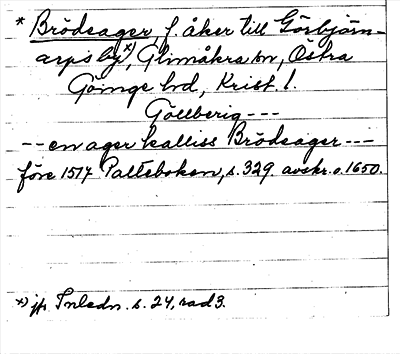 * Brödsager, f. åker till Görbjörn-
arps by x), Glimåkra sn, Östra
Göinge hd, Krist. l.
Göllberig ---
-- en ager kalliss Brödsager ---
före 1517 Palteboken, s. 329. avskr. o. 1650.
x) jfr Inledn. s. 24, rad 3.